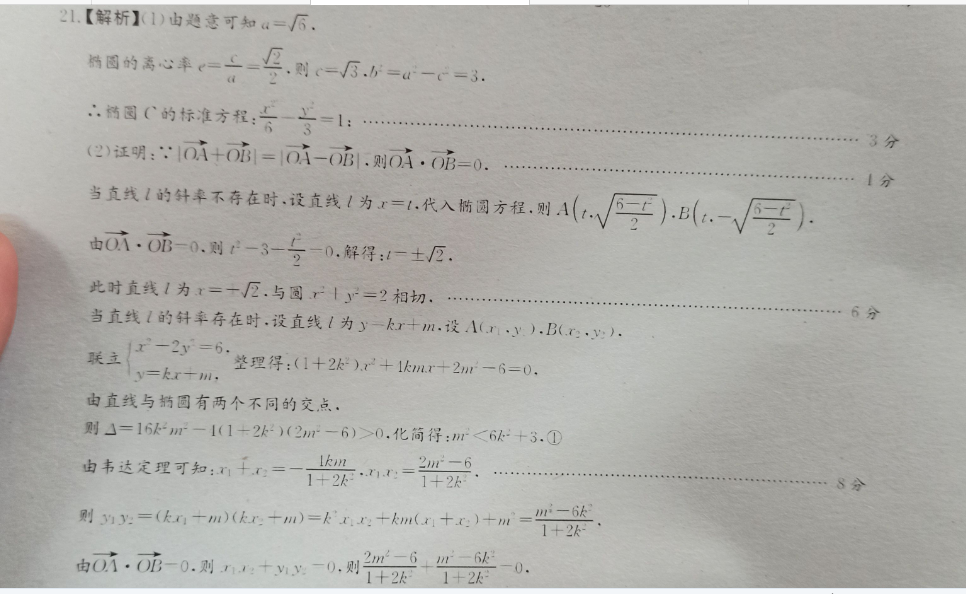 21.【解析】(1)由题意可知 a=√6.
椭圆的离心率 e=c/a=√2/2,则 c=√3,b²=a²-c²=3.
∴椭圆 C 的标准方程:x²/6+y²/3=1; …… 3 分
(2)证明:∵|OA→+OB→|=|OA→-OB→|,则OA→·OB→=0. …… 4 分
当直线 l 的斜率不存在时,设直线 l 为 x=t,代入椭圆方程,则 A(t,√((6-t²)/2)),B(t,-√((6-t²)/2)).
由OA→·OB→=0,则 t²-3+t²/2=0,解得:t=±√2.
此时直线 l 为 x=±√2,与圆 x²+y²=2 相切. …… 6 分
当直线 l 的斜率存在时,设直线 l 为 y=kx+m,设 A(x₁,y₁),B(x₂,y₂).
联立{x²+2y²=6, y=kx+m, 整理得:(1+2k²)x²+4kmx+2m²-6=0.
由直线与椭圆有两个不同的交点.
则 Δ=16k²m²-4(1+2k²)(2m²-6)>0,化简得:m²<6k²+3.①
由韦达定理可知:x₁+x₂=-4km/(1+2k²),x₁x₂=(2m²-6)/(1+2k²). …… 8 分
则 y₁y₂=(kx₁+m)(kx₂+m)=k²x₁x₂+km(x₁+x₂)+m²=(m²-6k²)/(1+2k²).
由OA→·OB→=0,则 x₁x₂+y₁y₂=0,则(2m²-6)/(1+2k²)+(m²-6k²)/(1+2k²)=0.